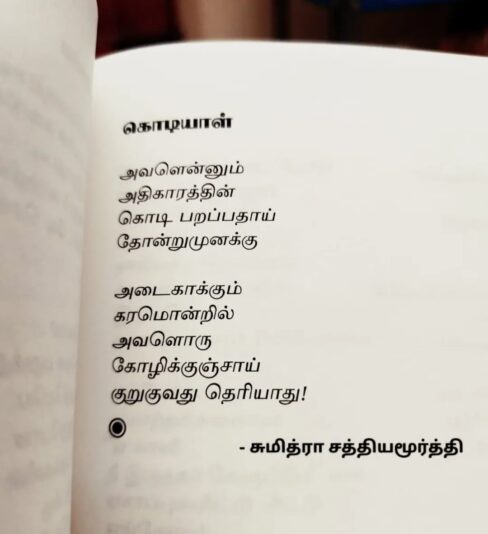 கொடியாள்
அவளென்னும்
அதிகாரத்தின்
கொடி பறப்பதாய்
தோன்றுமுனக்கு
அடைகாக்கும்
கரமொன்றில்
அவளொரு
கோழிக்குஞ்சாய்
குறுகுவது தெரியாது!
- சுமித்ரா சத்தியமூர்த்தி